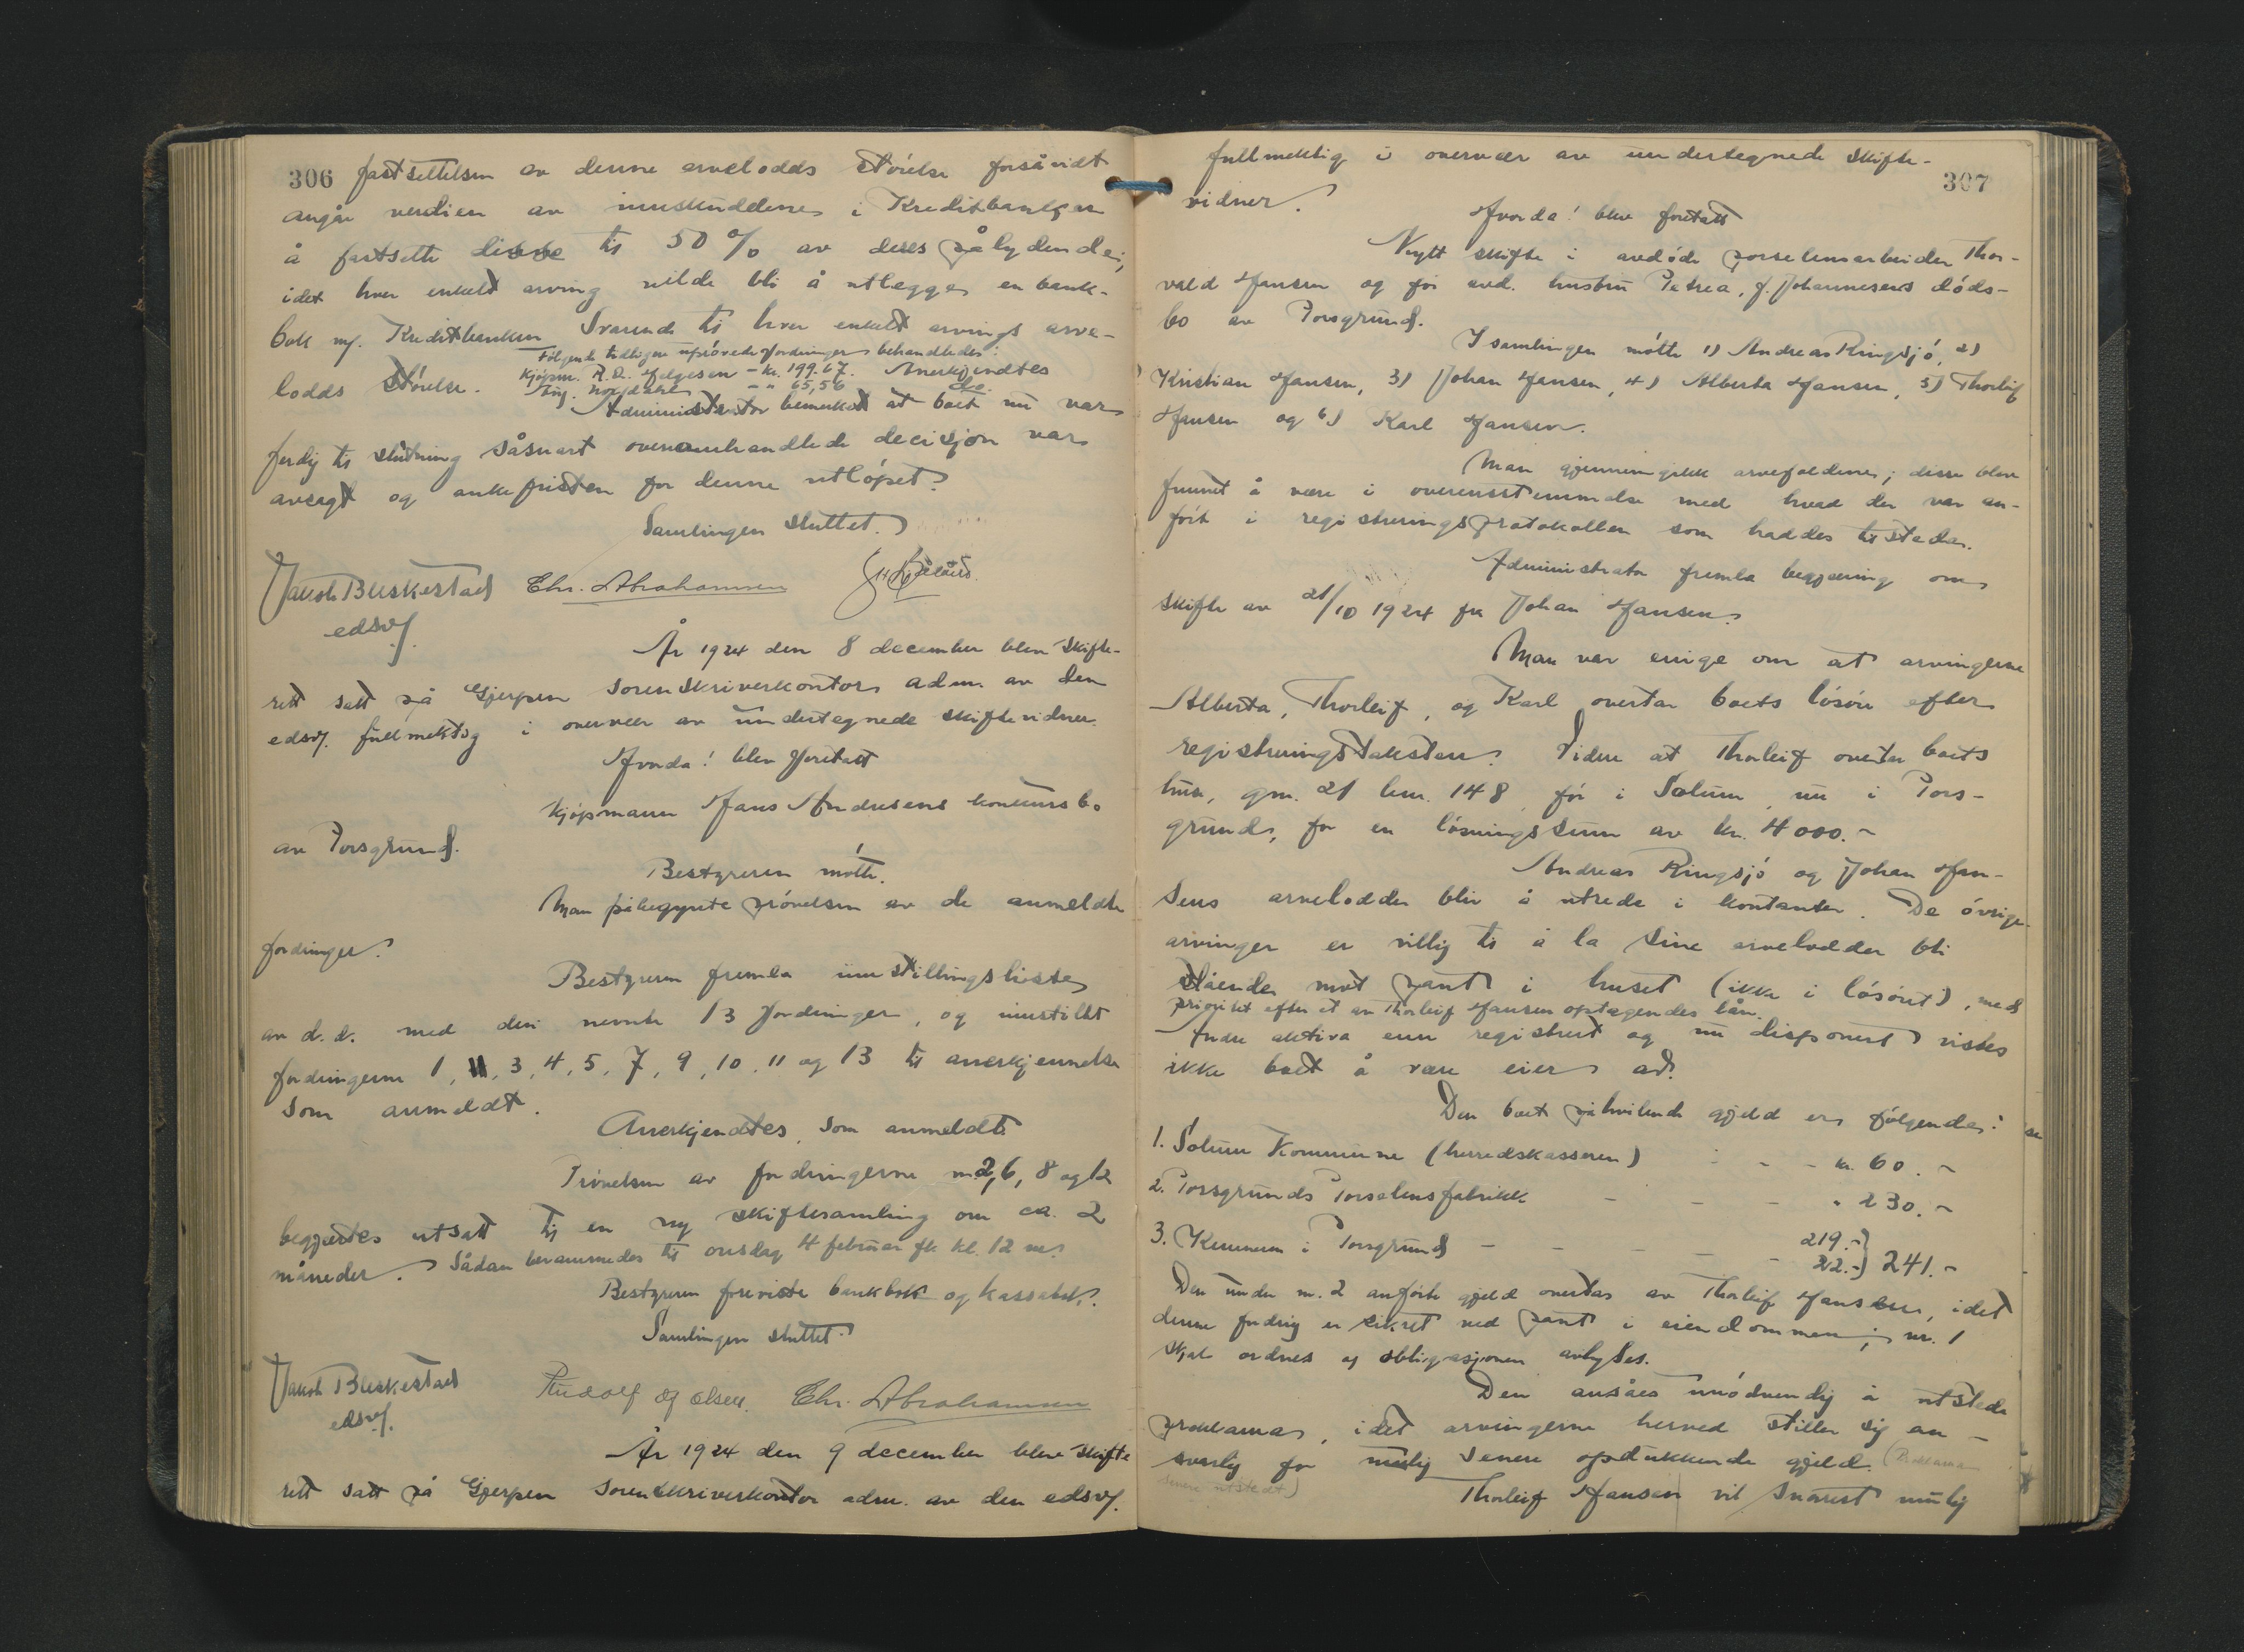 306 fastsettelsen av denne arvelodds størelse forsåvidt
angår verdien av innskuddene i Kreditbanken
å fastsette disse til 50 % av deres pålydende,
idet hver enkelt arving vilde bli å utlegge en bank-
bok m/. Kreditbanken svarende til hver enkelt arvings arve-
lodds størelse.
Følgende tidligere uprøvede fordringer behandledes:
Kjøpm. R. D. Helgesen - kr. 199.67. Anerkjendtes
Ing. - " 65,56 do.
Administrator bemerket at boet nu var
ferdig til slutning såsnart ovenomhandlede decisjon var
avsagt og ankefristen for denne utløpet.
Samlingen sluttet.
Jakob Buskestad Chr. Abrahamsen
edsv/.
År 1924 den 8 december blev skifte-
rett satt på Gjerpen sorenskriverkontor adm. av den
edsv/. fullmektig i overvær av undertegnede skiftevidner.
Hvorda! blev foretatt
Kjøpmann Hans Andresens konkursbo
av Porsgrund.
Bestyreren møtte.
Man påbegynte prøvelsen av de anmeldte
fordringer.
Bestyreren fremla innstillingsliste
av d. d. med den nevnte 13 fordringer, og innstillet
fordringerne 1, 3, 4, 5, 7, 9, 10, 11 og 13 til anerkjennelse
som anmeldt.
Anerkjendtes som anmeldt.
Prøvelsen av fordringerne nr 2, 6, 8 og 12
begjærtes utsatt til en ny skiftesamling om ca. 2
måneder. Sådan berammedes til onsdag 4 februar fk kl. 12 m.
Bestyreren foreviste bankbok og kassabok.
Samlingen sluttet.
Jakob Buskestad Rudolf Olsen. Chr. Abrahamsen
edsv/.
År 1924 den 9 december blev skifte
rett satt på Gjerpen sorenskriverkontor adm. av den edsv/.
fullmektig i overvær av undertegnede skifte-
307
vidner.
Hvorda! blev foretatt
Nytt skifte i avdøde porselensarbeider Thor-
vald Hansen og før avd. hustru Petrea, f. Johannesens døds-
bo av Porsgrund.
I samlingen møtte 1) Andreas Ringsjø, 2)
Kristian Hansen, 3) Johan Hansen, 4) Alberta Hansen, 5) Thorleif
Hansen og 6) Karl Hansen.
Man gjennemgikk arvefaldene; disse blev
funnet å være i overensstemmelse med hvad der var an-
ført i registreringsprotokollen som haddes tilstede.
Administrator fremla begjæring om
skifte av 21/10 1924 fra Johan Hansen.
Man var enige om at arvingerne
Alberta, Thorleif, og Karl overtar boets løsøre efter
registreringstaksten. Videre at Thorleif overtar boets
hus, gnr. 21 bnr. 148 før i Solum, nu i Pors-
grund, for en løsningssum av kr. 4000.-
Andreas Ringsjø og Johan Han-
sens arvelodder blir å utrede i kontanter. De øvrige
arvinger er villig til å la sine arvelodder bli
stående mot pant i huset (ikke i løsøret), med
prioritet efter et av Thorleif Hansen optagendes lån.
Andre aktiva enn registrert og nu disponert vistes
ikke boet å være eier av.
Den boet påhvilende gjeld er følgende:
1. Solum Kommune (herredskasseren) - - kr. 60.-
2. Porsgrunds Porselensfabrikk - - - " 230.-
3. Kemneren i Porsgrund - - - - 219.-
22.- } 241.-
Den under nr. 2 anførte gjeld overtas av Thorleif Hansen, idet
denne fordring er sikret ved pant i eiendommen; nr. 1
skal ordnes og obligasjonen avlyses.
Den ansåes unødvendig å utstede
proklama, idet arvingerne herved stiller sig an-
svarlig for mulig senere opdukkende gjeld. (Proklama
senere utstedt)
Thorleif Hansen vil snarest mulig